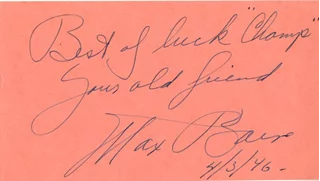 Best of luck "Champ"
Your old friend
Max Baer
4/3/46-